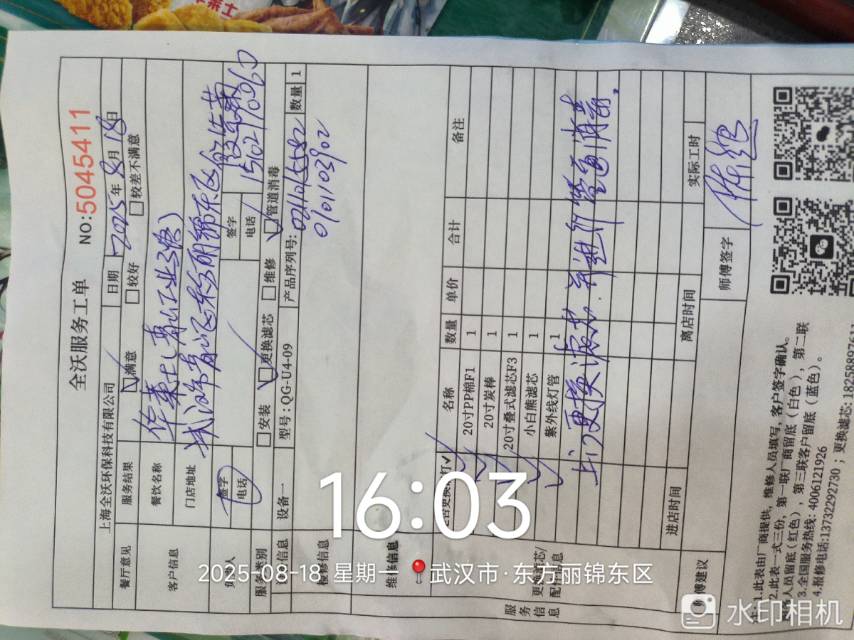 全沃服务工单
NO:5045411
上海全沃环保科技有限公司
日期 2025年8月18日
餐厅意见 服务结果 满意 较好 较差不满意
客户信息 餐饮名称 华莱士(青山工业三路)
门店地址
签字 签字
电话 电话 15021710360
服务类别 安装 更换滤芯 维修 管道消毒
设备一 型号:QG-U4-09 产品序列号: 数量 1
维修信息
名称 数量 单价 合计 备注
20寸PP棉F1 1
20寸炭棒 1
20寸叠式滤芯F3 1
小白熊滤芯 1
紫外线灯管 1
上门更换滤芯.并进行管道消毒.
服务信息
进店时间 离店时间 实际工时
师傅建议 师傅签字
1.此表由厂商提供,维修人员填写,客户签字确认。
2.此表一式三份,第一联厂商留底(白色),第二联
人员留底(红色),第三联客户留底(蓝色)。
3.全国服务热线:4006121926
4.报修电话:13732292730;更换滤芯:18258897611
16:03
2025-08-18 星期一 武汉市·东方丽锦东区
水印相机